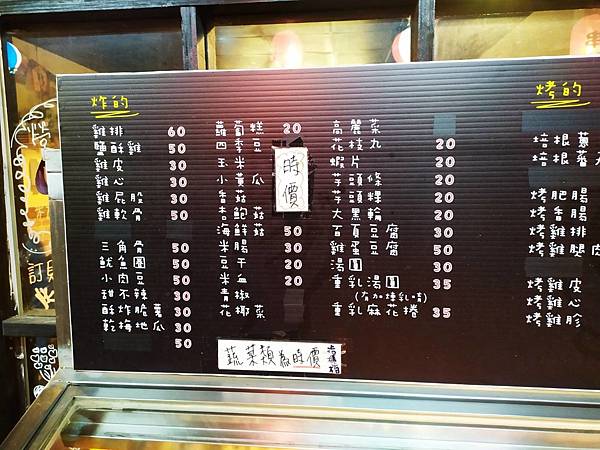 炸的
雞排 60
鹽酥雞 50
雞皮 30
雞心 30
雞屁股 30
雞軟骨 50
三角骨 50
魷魚圈 50
小肉豆 30
甜不辣 30
酥炸脆薯 30
乾梅地瓜 30
50
蘿蔔糕 20
四季豆
玉米
小黃瓜
香菇
杏鮑菇
海鮮菇 50
米腸 30
豆干 20
米血 20
青椒
花椰菜
時價
高麗菜
花枝丸 20
蝦片 20
芋頭條 20
芋頭粿 20
大黑輪 20
百頁豆腐 30
雞蛋豆腐 50
湯圓 30
重乳湯圓 35
(有加煉乳唷)
重乳麻花捲 35
烤的
培根蔥
培根番茄
烤肥腸
烤香腸
烤雞排
烤雞腿肉
烤雞皮
烤雞心
烤雞胗
蔬菜類為時價
訂